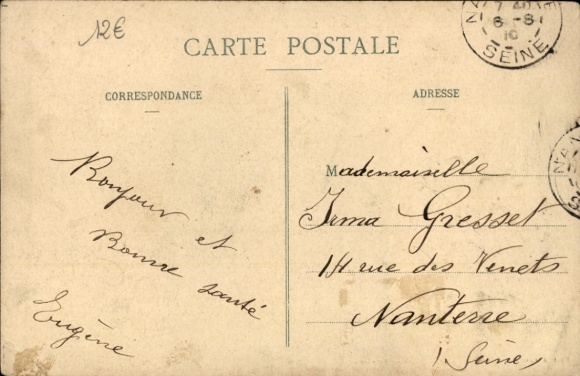 12€
CARTE POSTALE
CORRESPONDANCE
ADRESSE
7 40
8 -8
10
SEINE
NA
Bonjour et
Bonne santé
Eugène
Mademoiselle
Irma Gresset
14 rue des Venets
Nanterre
(Seine)